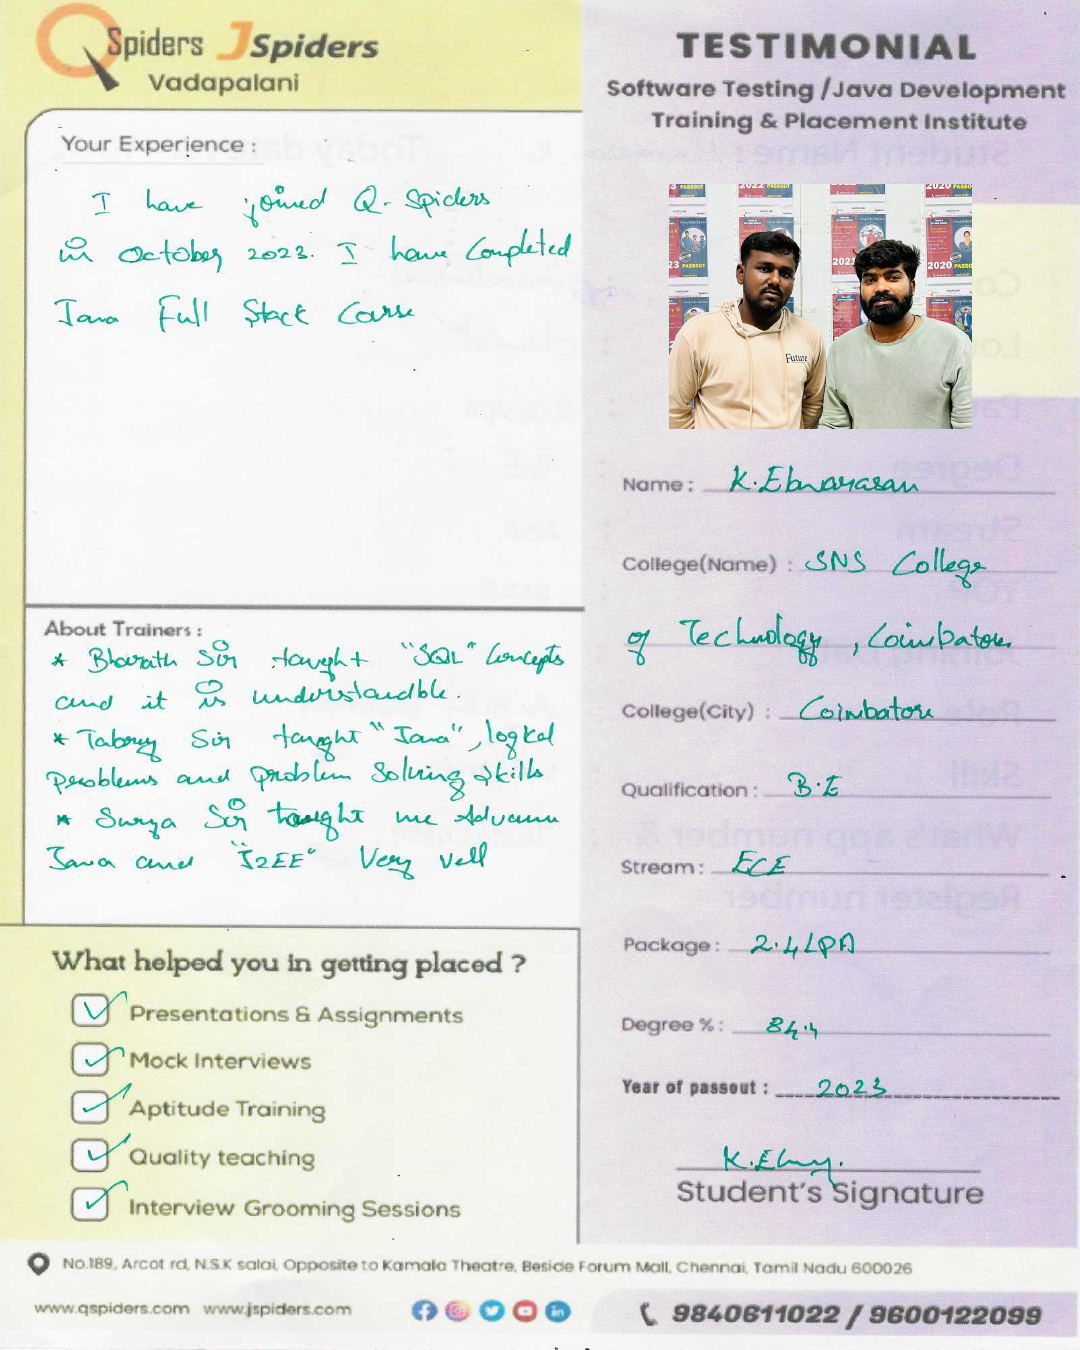 QSpiders JSpiders
Vadapalani
TESTIMONIAL
Software Testing /Java Development
Training & Placement Institute
Your Experience :
I have joined Q- Spiders
in October 2023. I have Completed
Java Full Stack Course
Future
Name : K.Elavarasan
College(Name) : SNS College
of Technology, Coimbatore
College(City) : Coimbatore
Qualification : B.E
Stream : ECE
Package : 2.4LPA
Degree % : 84.4
Year of passout : 2023
K.Elav.
Student's Signature
About Trainers :
* Bharath Sir taught "SQL" Concepts
and it is understandble.
* Tabrey Sir taught "Java", logical
problems and problem Solving skills
* Surya Sir taught me Advance
Java and "J2EE" Very vell
What helped you in getting placed ?
Presentations & Assignments
Mock Interviews
Aptitude Training
Quality teaching
Interview Grooming Sessions
No.189, Arcot rd, N.S.K salai, Opposite to Kamala Theatre, Beside Forum Mall, Chennai, Tamil Nadu 600026
www.qspiders.com www.jspiders.com
9840611022 / 9600122099